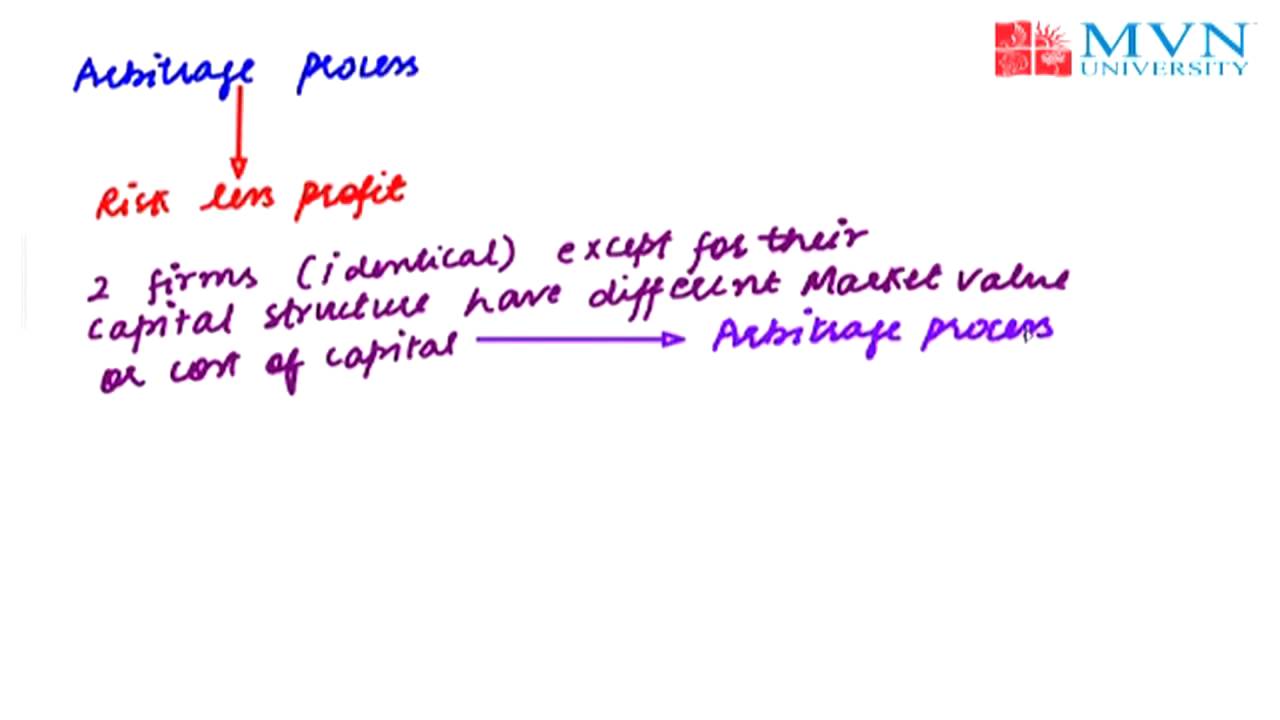 Arbitrage process
MVN
UNIVERSITY
Risk less profit
2 firms (identical) except for their
capital structure have different Market value
or cost of capital → Arbitrage process